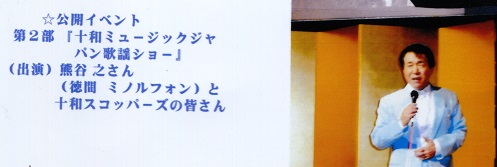 ☆公開イベント
第２部『十和ミュージックジャ
パン歌謡ショー』
（出演）熊谷 之さん
（徳間 ミノルフォン）と
十和スコッパーズの皆さん